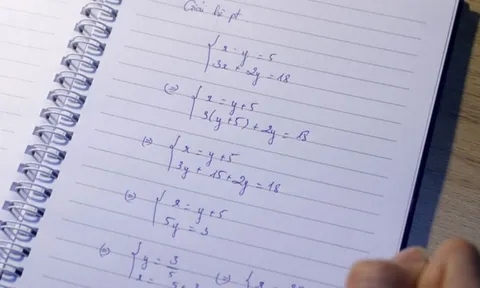 Giải hệ pt
{ x - y = 5
3x + 2y = 18
(=) { x = y+5
3(y+5) + 2y = 18
(=) { x = y+5
3y + 15 + 2y = 18
(=) { x = y+5
5y = 3
(=) { y = 3/5 (=) {
x =